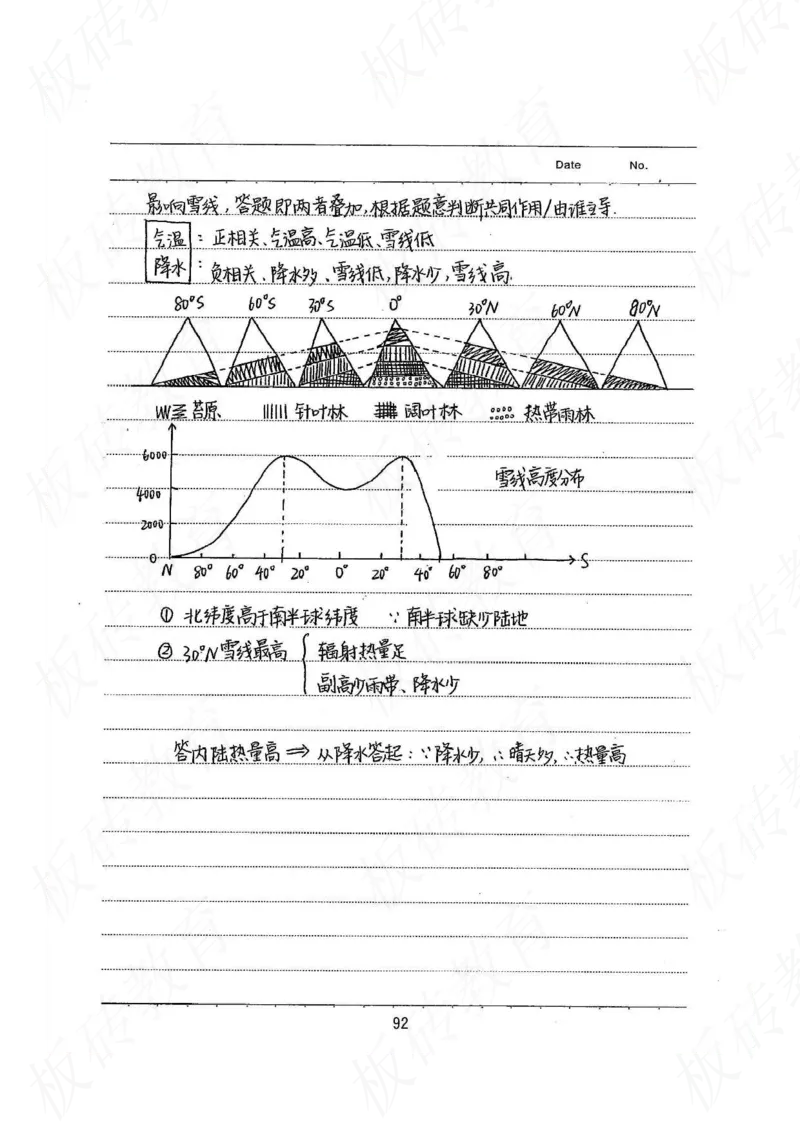 Date No.
影响雪线,答题即两者叠加,根据题意判断共同作用/由谁主导.
气温:正相关、气温高、气温低、雪线低
降水:负相关、降水多、雪线低,降水少,雪线高.
80°S 60°S 30°S 0° 30°N 60°N 80°N
苔原 针叶林 阔叶林 热带雨林
6000
雪线高度分布
4000
2000
0
S
N 80° 60° 40° 20° 0° 20° 40° 60° 80°
① 北纬度高于南半球纬度 ∵南半球缺少陆地
② 30°N雪线最高 { 辐射热量足
副高少雨带、降水少
答内陆热量高 ⇒ 从降水答起:∵降水少,∴晴天多,∴热量高
92
板砖教育